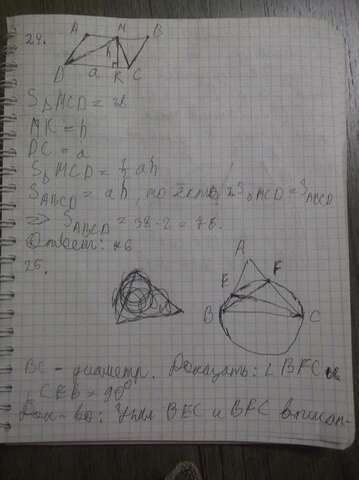 24.
A M B
h
D a K C
S△MCD = 38
MK = h
DC = a
S△MCD = ½ ah
SABCD = ah, то есть 2S△MCD = SABCD
⇒ SABCD = 38·2 = 76.
Ответ: 76
25.
A
E F
B C
BC - диаметр. Доказать: ∠BFC и
∠CEB = 90°
Док-во: Углы BEC и BFC вписан-